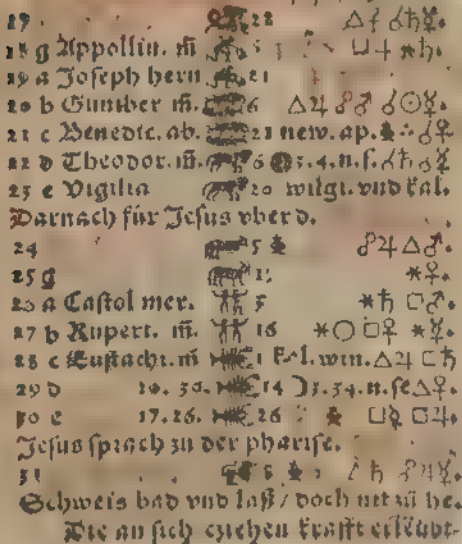 17 22 △
18 g Appollin. m̄ 5 □ ♃ ✶♄.
19 a Joseph hern 21
20 b Gunther m̄. 6 △♃ ☍♂ ☌☉☿.
21 c Benedic. ab. 21 new. ap. ☌♀
22 d Theodor. m̄. 6 3.4.n.ſ. ☌♄ ☌☿
23 e Vigilia 20 wilgt. vnd kal.
Darnach für Jeſus vber d.
24 5 ☍♃ △♂.
25 g ✶♀.
26 a Caſtol mer. 5 ✶♄ □♂.
27 b Rupert. m̄. 16 ✶☉ □♀ ✶☿.
28 c Euſtachi. m̄ 1 kal. win. △♃ □♄
29 d 10. 50. 14 ☽3.54.n. ſe △♀.
30 e 17.26. 26 □☿ □♃.
Jeſus ſprach zu der phariſe.
31 8 ♄
Schweis bad vnd laß / doch nit zů he.
Die an ſich cziehen krafft